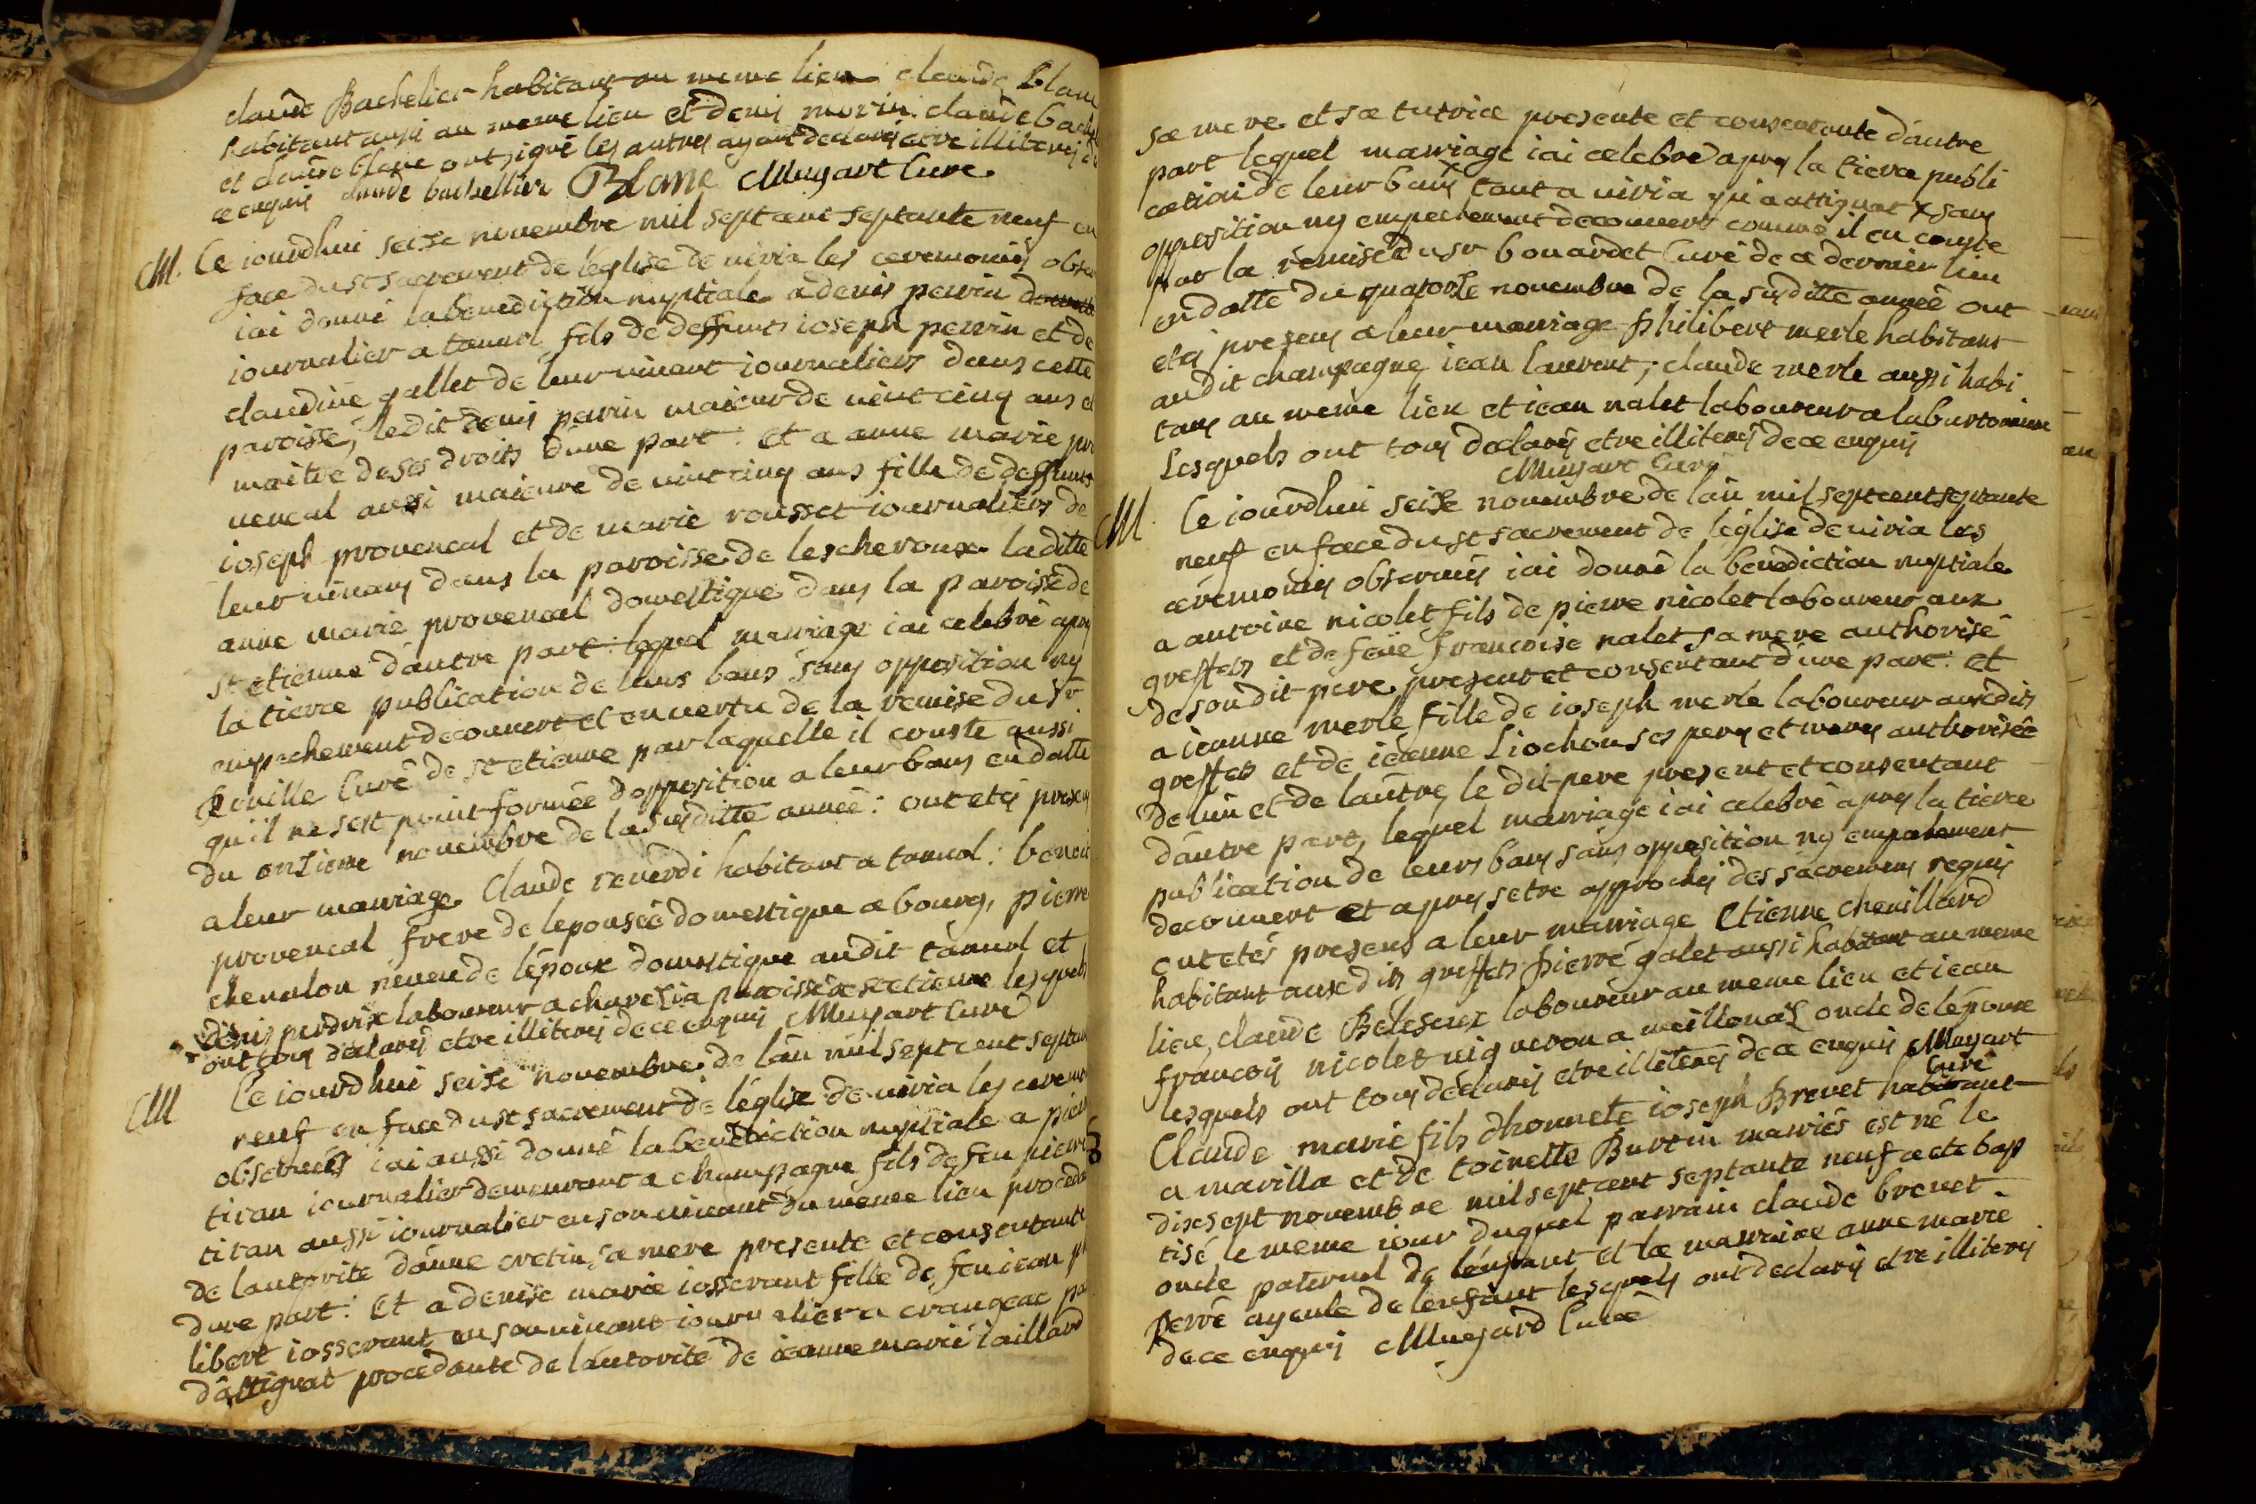 claude Bachelier habitant au meme lieu claude Blanc
habitant aussi au meme lieu et denis morin. claude bach
et claude blanc ont signé les autres ayant declarés etre illiterés de
ce enquis claude bachellier Blanc Mugart Curé
M. Ce iourdhui seise novembre mil sept cent septante neuf en
face du st sacrement de leglise de viria les ceremonies obser
iai donné la benediction nuptiale a denis perrin
iournalier a tannol fils de deffunts ioseph perrin et de
claudine gallet de leur vivent iournaliers dans cette
paroisse, ledit denis perrin maieur de vint cinq ans et
maitre de ses droits dune part : et a anne marie pro
vencal aussi maieure de vint cinq ans fille de deffunts
ioseph provencal et de marie rousset iournaliers de
leur vivans dans la paroisse de lescheroux la ditte
anne marie provencal domestique dans la paroisse de
st etienne dautre part : lequel marriage iai celebré apres
la tierce publication de leurs bans sans opposition ny
empechement decouvert et en vertu de la remise du sr
curé de st etienne par laquelle il conste aussi
quil ne sest point formée dopposition a leur bans en datte
du onsieme novembre de la susditte année : ont etés presens
a leur marriage Claude reverdi habitant a tannol : benoit
provencal frere de lepousée domestique a bourg, pierre
chevalon neveu de lépoux domestique audit tannol et
denis perdrix laboureur a charesia paroisse de st etienne lesquels
ont tous declarés etre illiterés de ce enquis Mugart Curé
M Ce iourdhui seise novembre de lan mil sept cent septante
neuf en face du st sacrement de léglise de viria les ceremo
observées iai aussi donné la benediction nuptiale a pierre
titan iournalier demeurant a champagne fils de feu pierre
titan aussi iournalier en son vivant du meme lieu procedant
de lautorite danne cretin sa mere presente et consentante
dune part : Et a denise marie iosserant fille de feu iean phi
libert iosserant en son vivant iournalier a crangeac
dattignat procedante de lautorité de ieanne marie iaillard
sa mere et sa tutrice presente et consentante dautre
part lequel marriage iai celebré apres la tierce publi
cation de leur bans tant a viria qu'a attignat sans
opposition ny empechement decouvert comme il en conste
par la remise du sr bouardet Curé de ce dernier lieu
en datte du quatorse novembre de la susditte année ont
etés presens a leur marriage philibert merle habitant
audit champagne iean laurent ; claude merle aussi habi
tans au meme lieu et iean nalet laboureur a
Lesquels ont tous declarés etre illiterés de ce enquis
Mugart Curé
M. Ce iourdhui seise novembre de lan mil sept cent septante
neuf en face du st sacrement de léglise de viria les
ceremonies observées iai donné la benediction nuptiale
a antoine nicolet fils de pierre nicolet laboureur aux
greffets et de feüe francoise nalet sa mere authorisé
de son dit pere present et consentant dune part : et
a ieanne merle fille de ioseph merle laboureur auxdits
greffets et de ieanne Liochon ses peres et meres authorisée
de lun et de lautre, le dit pere present et consentant
dautre part, lequel marriage iai celebré apres la tierce
publication de leurs bans sans opposition ny empechement
decouvert et apres setre approchés des sacremens requis
ont etés presens a leur marriage Etienne chevillard
habitant auxdits greffets pierre galet aussi habitant au meme
lieu, claude Beleseux laboureur au meme lieu et iean
francois nicolet vigneron a meillonas oncle de lépoux
lesquels ont tous déclarés etre illiterés de ce enquis Mugart
Curé
Claude marie fils dhonnete ioseph Brevet habitant
a marilla et de toinette Burtin mariés est né le
dixsept novembre mil sept cent septante neuf a ete bap
tisé le meme iour duquel parrain claude brevet
oncle paternel de lenfant et la marraine anne marie
perré ayeule de lenfant lesquels ont declarés etre illiterés
de ce enquis Mugard Curé